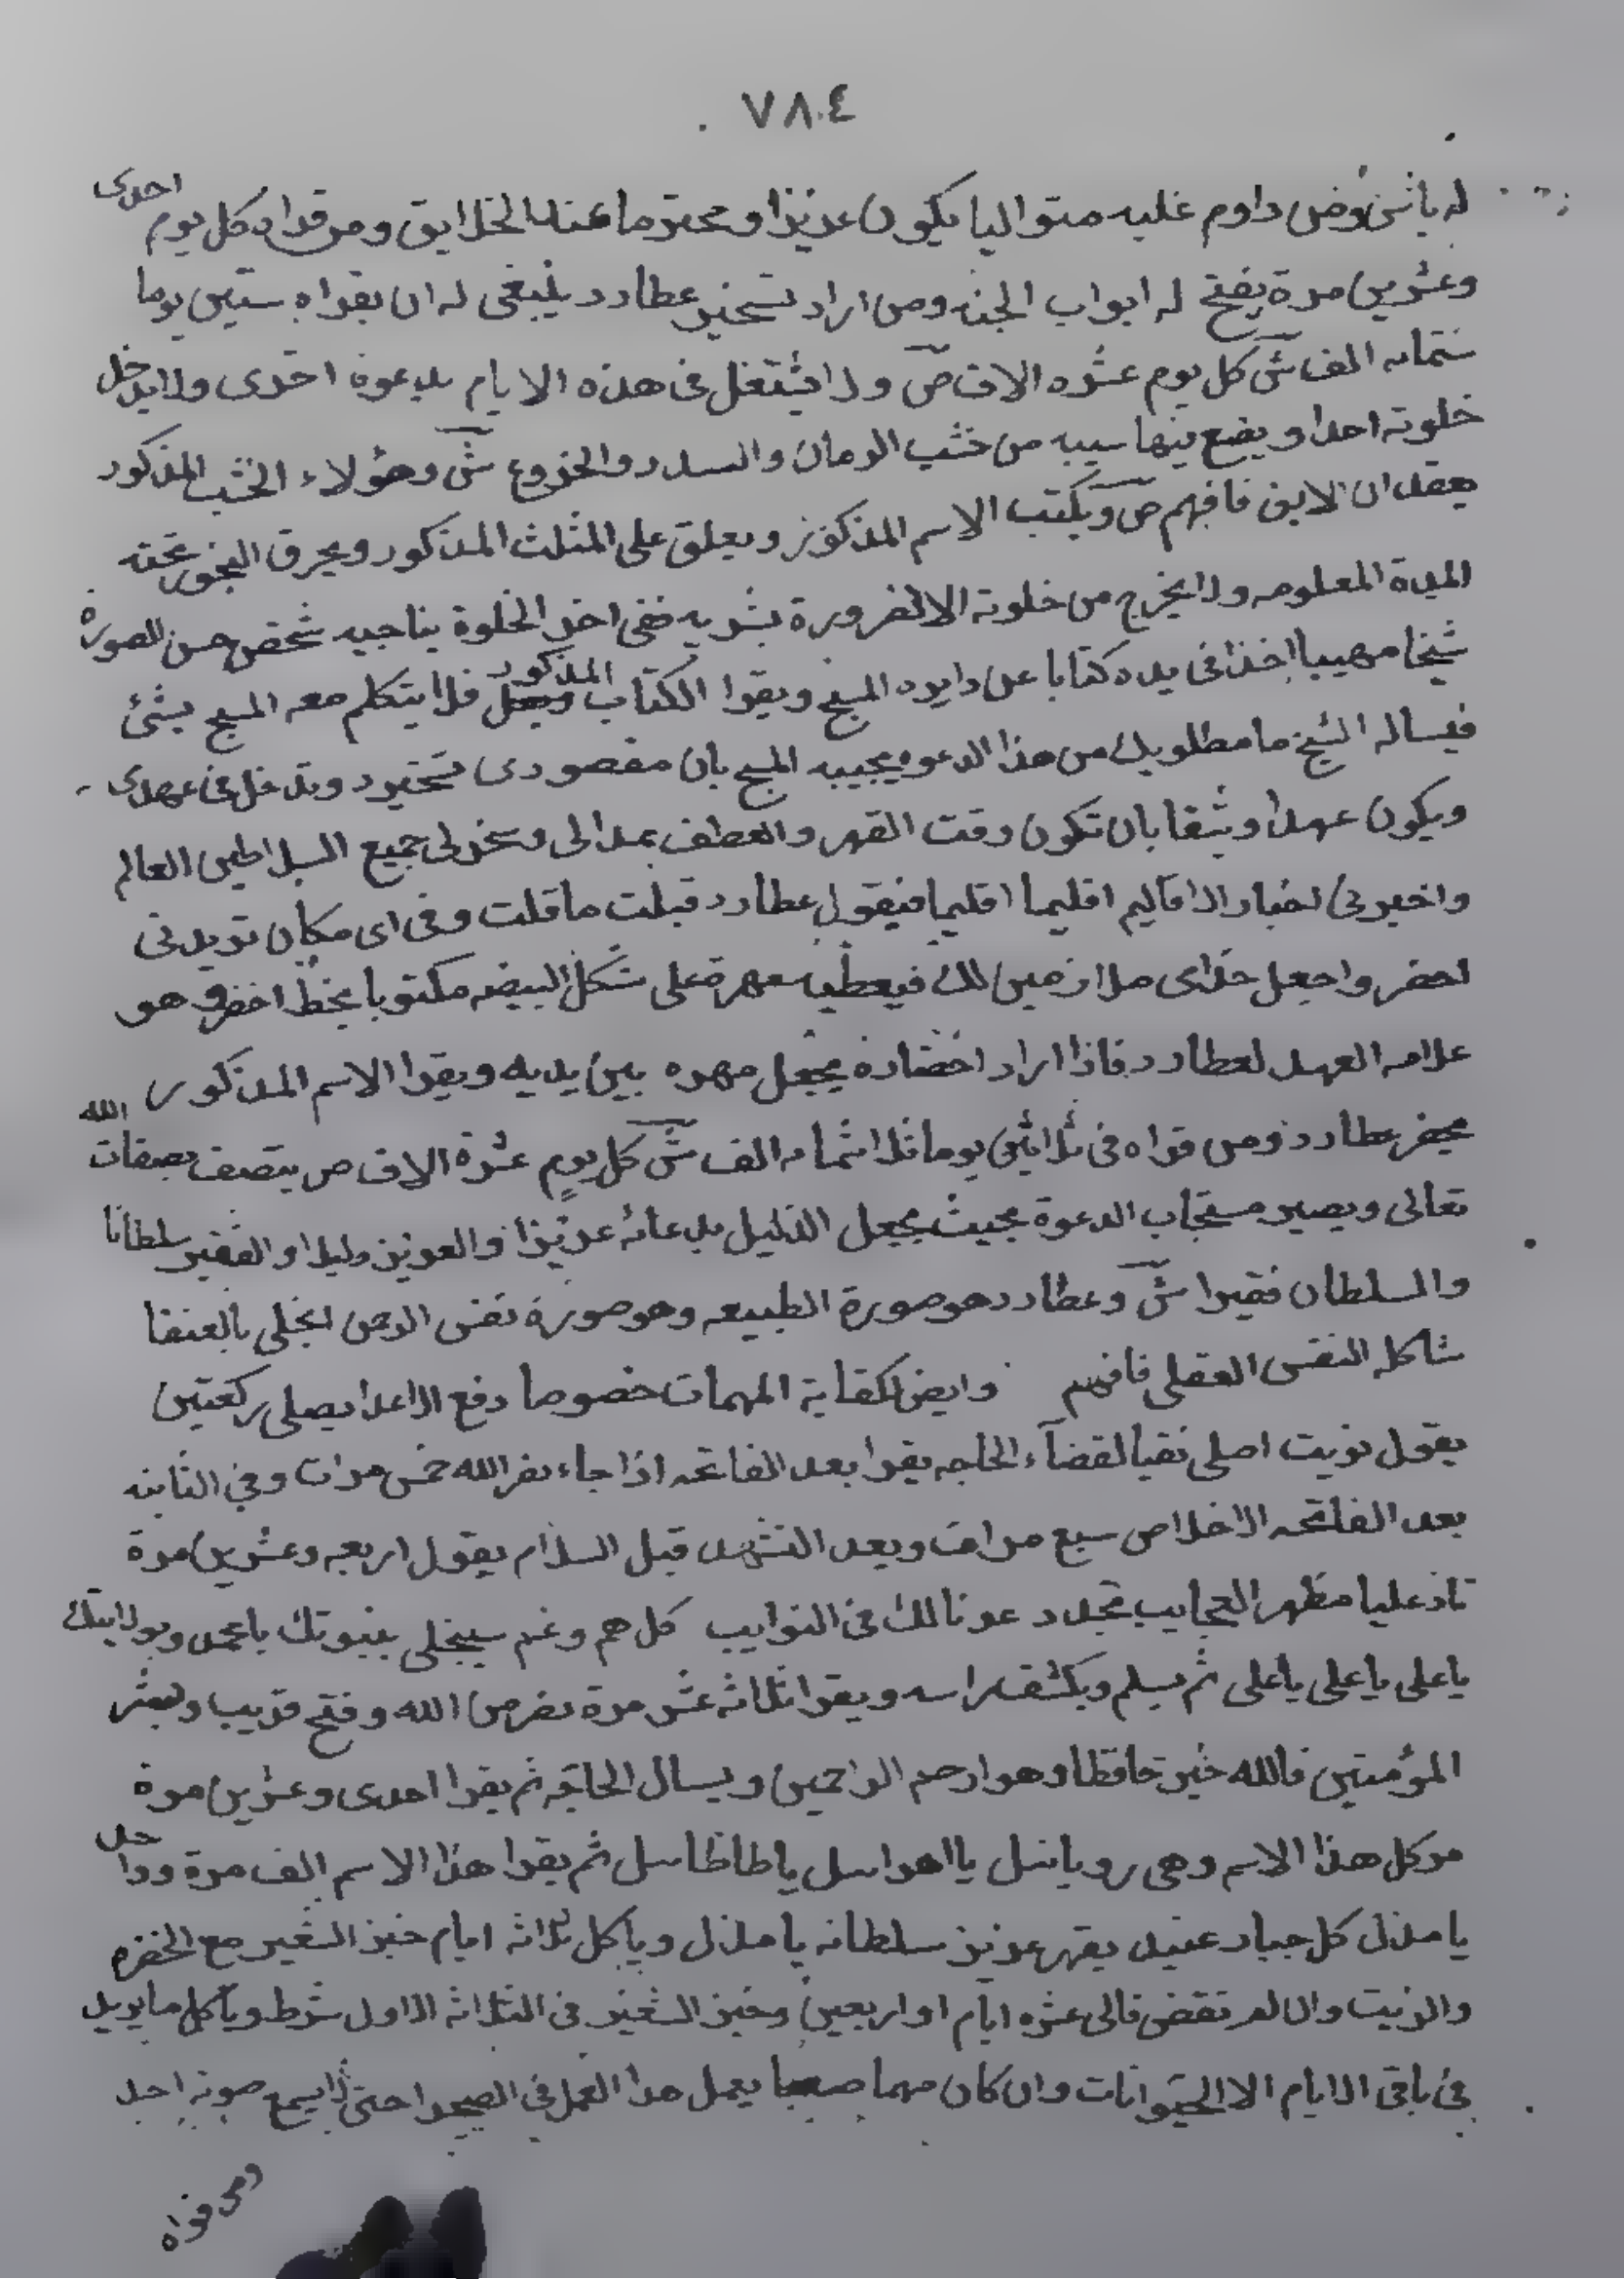 ٧٨٤
له باثس ومن داوم عليه متواليا يكون عزيزا ومحترما عند الخلايق ومن قراه كل يوم احدى
وعشرين مرة يفتح له ابواب الجنه ومن اراد تسخير عطارد ينبغى له ان يقراه ستين يوما
ستمايه الف ش كل يوم عشره الاف ص ولا يشتغل فى هذه الايام بدعوة اخرى ولا يدخل
خلوته احدا ويضع فيها سيبه من خشب الرمان والسدر والخروع ش وهؤلاء الخشب المذكور
يعقدان الابق فافهم ص ويكتب الاسم المذكور ويعلق على المثلث المذكور ويحرق البخور تحته
المدة المعلومه ولا يخرج من خلوته الا لضرورة بشريه ففى اخر الخلوة يناجيه شخص حسن الصورة
شيخا مهيبا اخذا فى يده كتابا على دايره المسبح ويقرا الكتاب المذكور فلا يتكلم معه المسبح بشئ
فيساله الشيخ ما مطلوبك من هذا الدعوه يجيبه المسبح بان مقصودى تسخيرد وتدخل فى عهدى
ويكون عهدا وثيقا بان تكون وقت القهر والعطف ممدا لى وسخر لى جميع السلاطين العالم
واخبرنى اخبار الاقاليم اقليما اقليما فيقول عطارد قبلت ما قلت وفى اى مكان تريدنى
احضر واجعل خدامى ملازمين لك فيعطيه مهرة على شكل البيضه مكتوبا بخط اخضر وهو
علامه العهد لعطارد فاذا اراد احضاره يجعل مهره بين يديه ويقرا الاسم المذكور
يحضر عطارد ومن قراه فى ثلاثين يوما ثلاثمايه الف ش كل يوم عشرة الاف ص يتصف بصفات الله
تعالى ويصير مستجاب الدعوة بحيث يجعل الذليل بدعائه عزيزا والعزيز ذليلا والفقير سلطانا
والسلطان فقيرا ش وعطارد هو صورة الطبيعه وهو صورة نفس الرحمن بالعنقا
شاكله النفس العقلى فافهم وايض لكفاية المهمات خصوصا دفع الاعدا يصلى ركعتين
يقول نويت اصلى لقضاء الحاجه يقرا بعد الفاتحه اذا جاء نصر الله خمس مرات وفى الثانيه
بعد الفاتحه الاخلاص سبع مرات وبعد التشهد قبل السلام يقول اربعه وعشرين مرة
ناد عليا مظهر العجايب تجده عونا لك فى النوايب كل هم وغم سينجلى بنبوتك يا محمد وبولايتك
يا على يا على يا على ثم يسلم ويكشف راسه ويقرا ثلاثه عشر مرة نصر من الله وفتح قريب وبشر
المؤمنين فالله خير حافظا وهو ارحم الراحمين ويسال الحاجه ثم يقرا احدى وعشرين مرة
موكل هذا الاسم وهى رويائيل يا اهرائيل يا طاطائيل ثم يقرا هذا الاسم الف مرة وواحد
يا مذل كل جبار عنيد بقهر عزيز سلطانه يا مذل وياكل ثلاثه ايام خبز الشعير مع الخضره
والزيت وان لم تقضى فالى عشره ايام او اربعين وخبز الشعير فى الثلاثه الاول شرط وياكل ما يريد
فى باقى الايام الا الحيوانات وان كان مهما صعبا يعمل هذا العمل فى الصحرا حتى لا يسمع صوته احد
ومن قراه